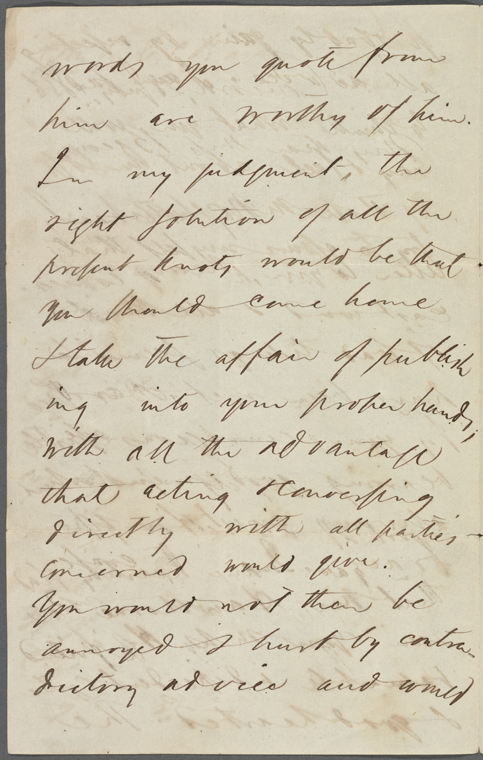 words you quote from
him are worthy of him.
In my judgment, the
right solution of all the
present knots would be that
you should come home
& take the affair of publish
ing into your proper hands,
with all the advantage
that acting & conversing
directly with all parties
concerned would give.
You would not then be
annoyed & hurt by contra-
dictory advice and would